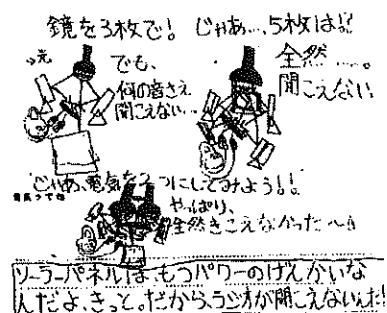 鏡を3枚で! じゃあ…、5枚は!?
光
でも、
何の音さえ
聞こえない…
全然……。
聞こえない
じゃあ、電気を2つにしてみよう!!
やっぱり、
全然きこえなかった〜
ソーラーパネルは、もつパワーのげんかいな
んだよ、きっと。だから、ラジオが聞こえないんだ!